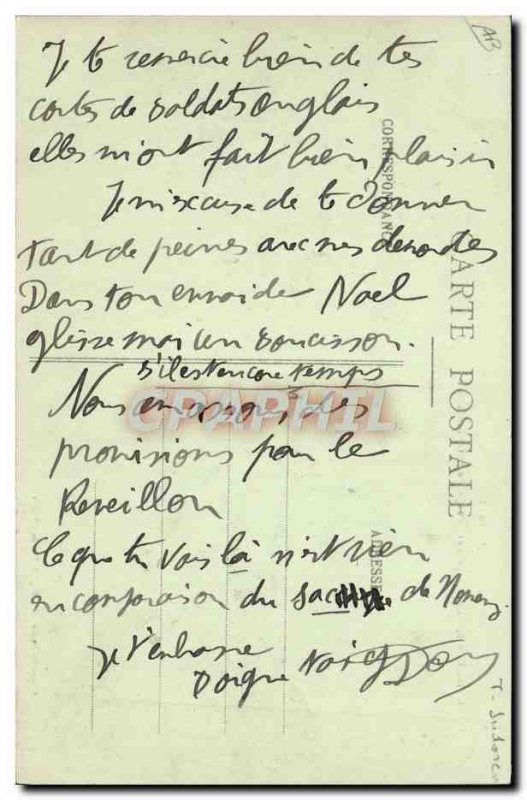 AB
Je te remercie bien de tes
cartes de soldats anglais
elles m'ont fait bien plaisir
Je m'excuse de te donner
tant de peines avec mes demandes
Dans ton envoi de Noel
glisse moi un soucisson.
s'il est encore temps
Nous amassons des
provisions pour le
Reveillon
Ce que tu vois là n'est rien
en comparaison du sac de
Je t'embrasse
CORRESPONDANCE
CARTE POSTALE
ADRESSE
CPAPHIL